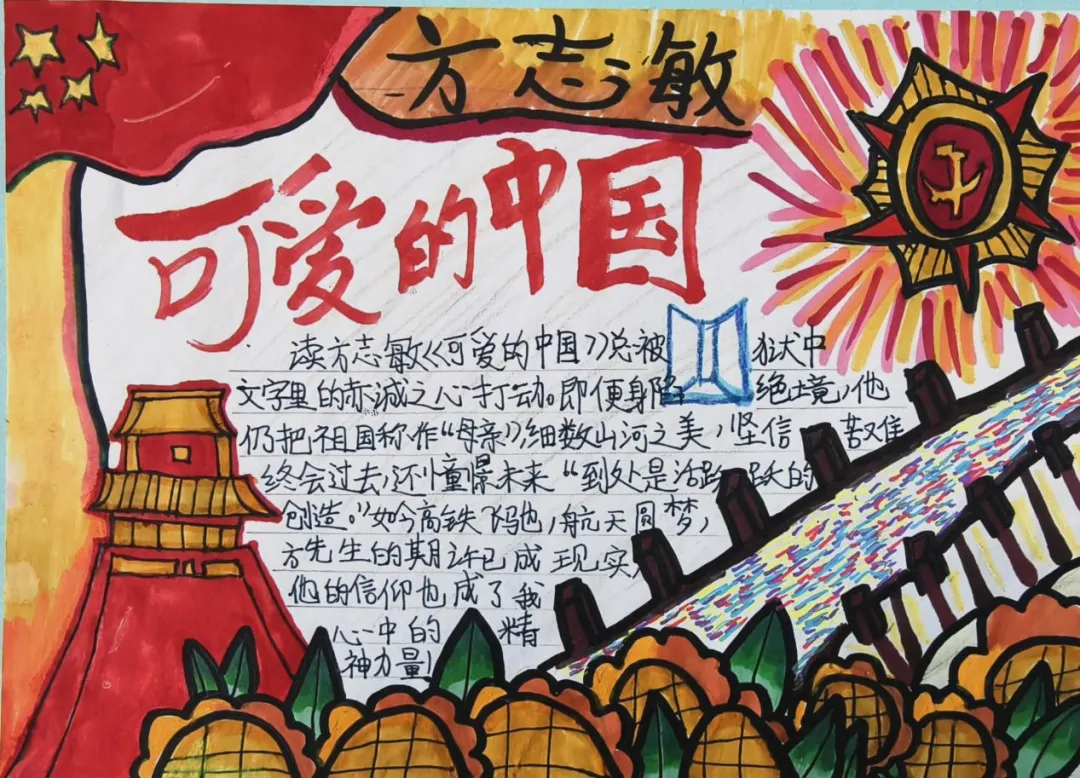 方志敏
可爱的中国
读方志敏《可爱的中国》总被狱中
文字里的赤诚之心打动。即便身陷绝境,他
仍把祖国称作“母亲”,细数山河之美,坚信苦难
终会过去,还憧憬未来“到处是活跃的
创造。”如今高铁飞驰,航天圆梦,
方先生的期许已成现实,
他的信仰也成了我
心中的精
神力量!